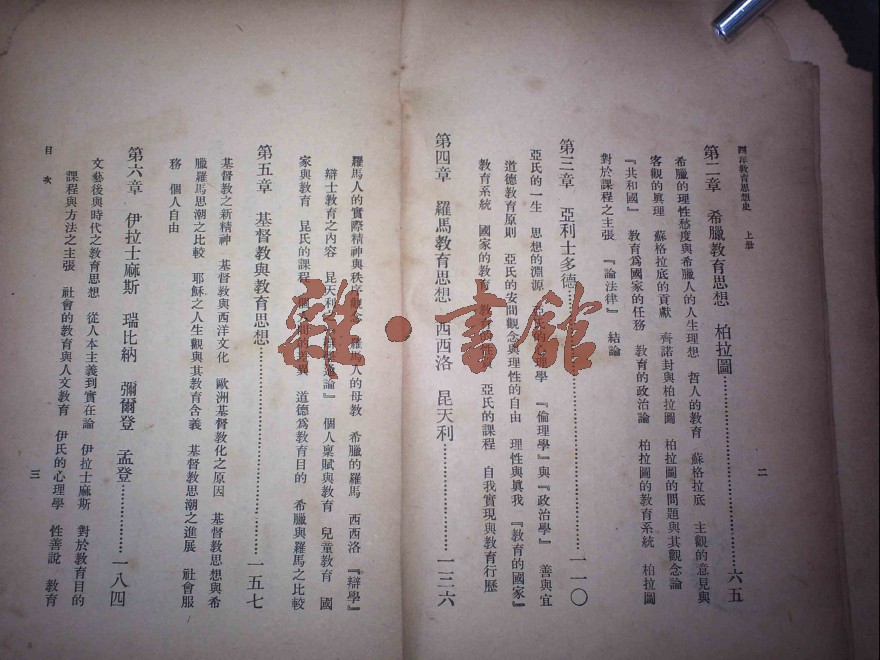 西洋教育思想史 上册
二
第二章 希臘教育思想 柏拉圖…………六五
希臘的理性態度與希臘人的人生理想 哲人的教育 蘇格拉底 主觀的意見與
客觀的眞理 蘇格拉底的貢獻 齊諾封與柏拉圖 柏拉圖的問題與其觀念論
『共和國』 教育爲國家的任務 教育的政治論 柏拉圖的教育系統 柏拉圖
對於課程之主張 『論法律』 結論
第三章 亞利士多德…………一一〇
亞氏的一生 思想的淵源 亞氏的 理學 『倫理學』與『政治學』 善與宜
道德教育原則 亞氏的 間觀念與理性的自由 理性與眞我 『教育的國家』
教育系統 國家的教育 教育的 亞氏的課程 自我實現與教育行歷
第四章 羅馬教育思想 西西洛 昆天利…………一三六
羅馬人的實際精神與秩序觀念 羅馬人的母教 希臘的羅馬 西西洛『辯學』
辯士教育之內容 昆天利 『辯 論』 個人稟賦與教育 兒童教育 國
家與教育 昆氏的課程 個人間的差異 道德爲教育目的 希臘與羅馬之比較
第五章 基督教與教育思想…………一五七
基督教之新精神 基督教與西洋文化 歐洲基督教化之原因 基督教思想與希
臘羅馬思潮之比較 耶穌之人生觀與其教育含義 基督教思潮之進展 社會服
務 個人自由
第六章 伊拉士麻斯 瑞比納 彌爾登 孟登…………一八四
文藝後與時代之教育思想 從人本主義到實在論 伊拉士麻斯 對於教育目的
課程與方法之主張 社會的教育與人文教育 伊氏的心理學 性善說 教育
目次
三
雜·書館